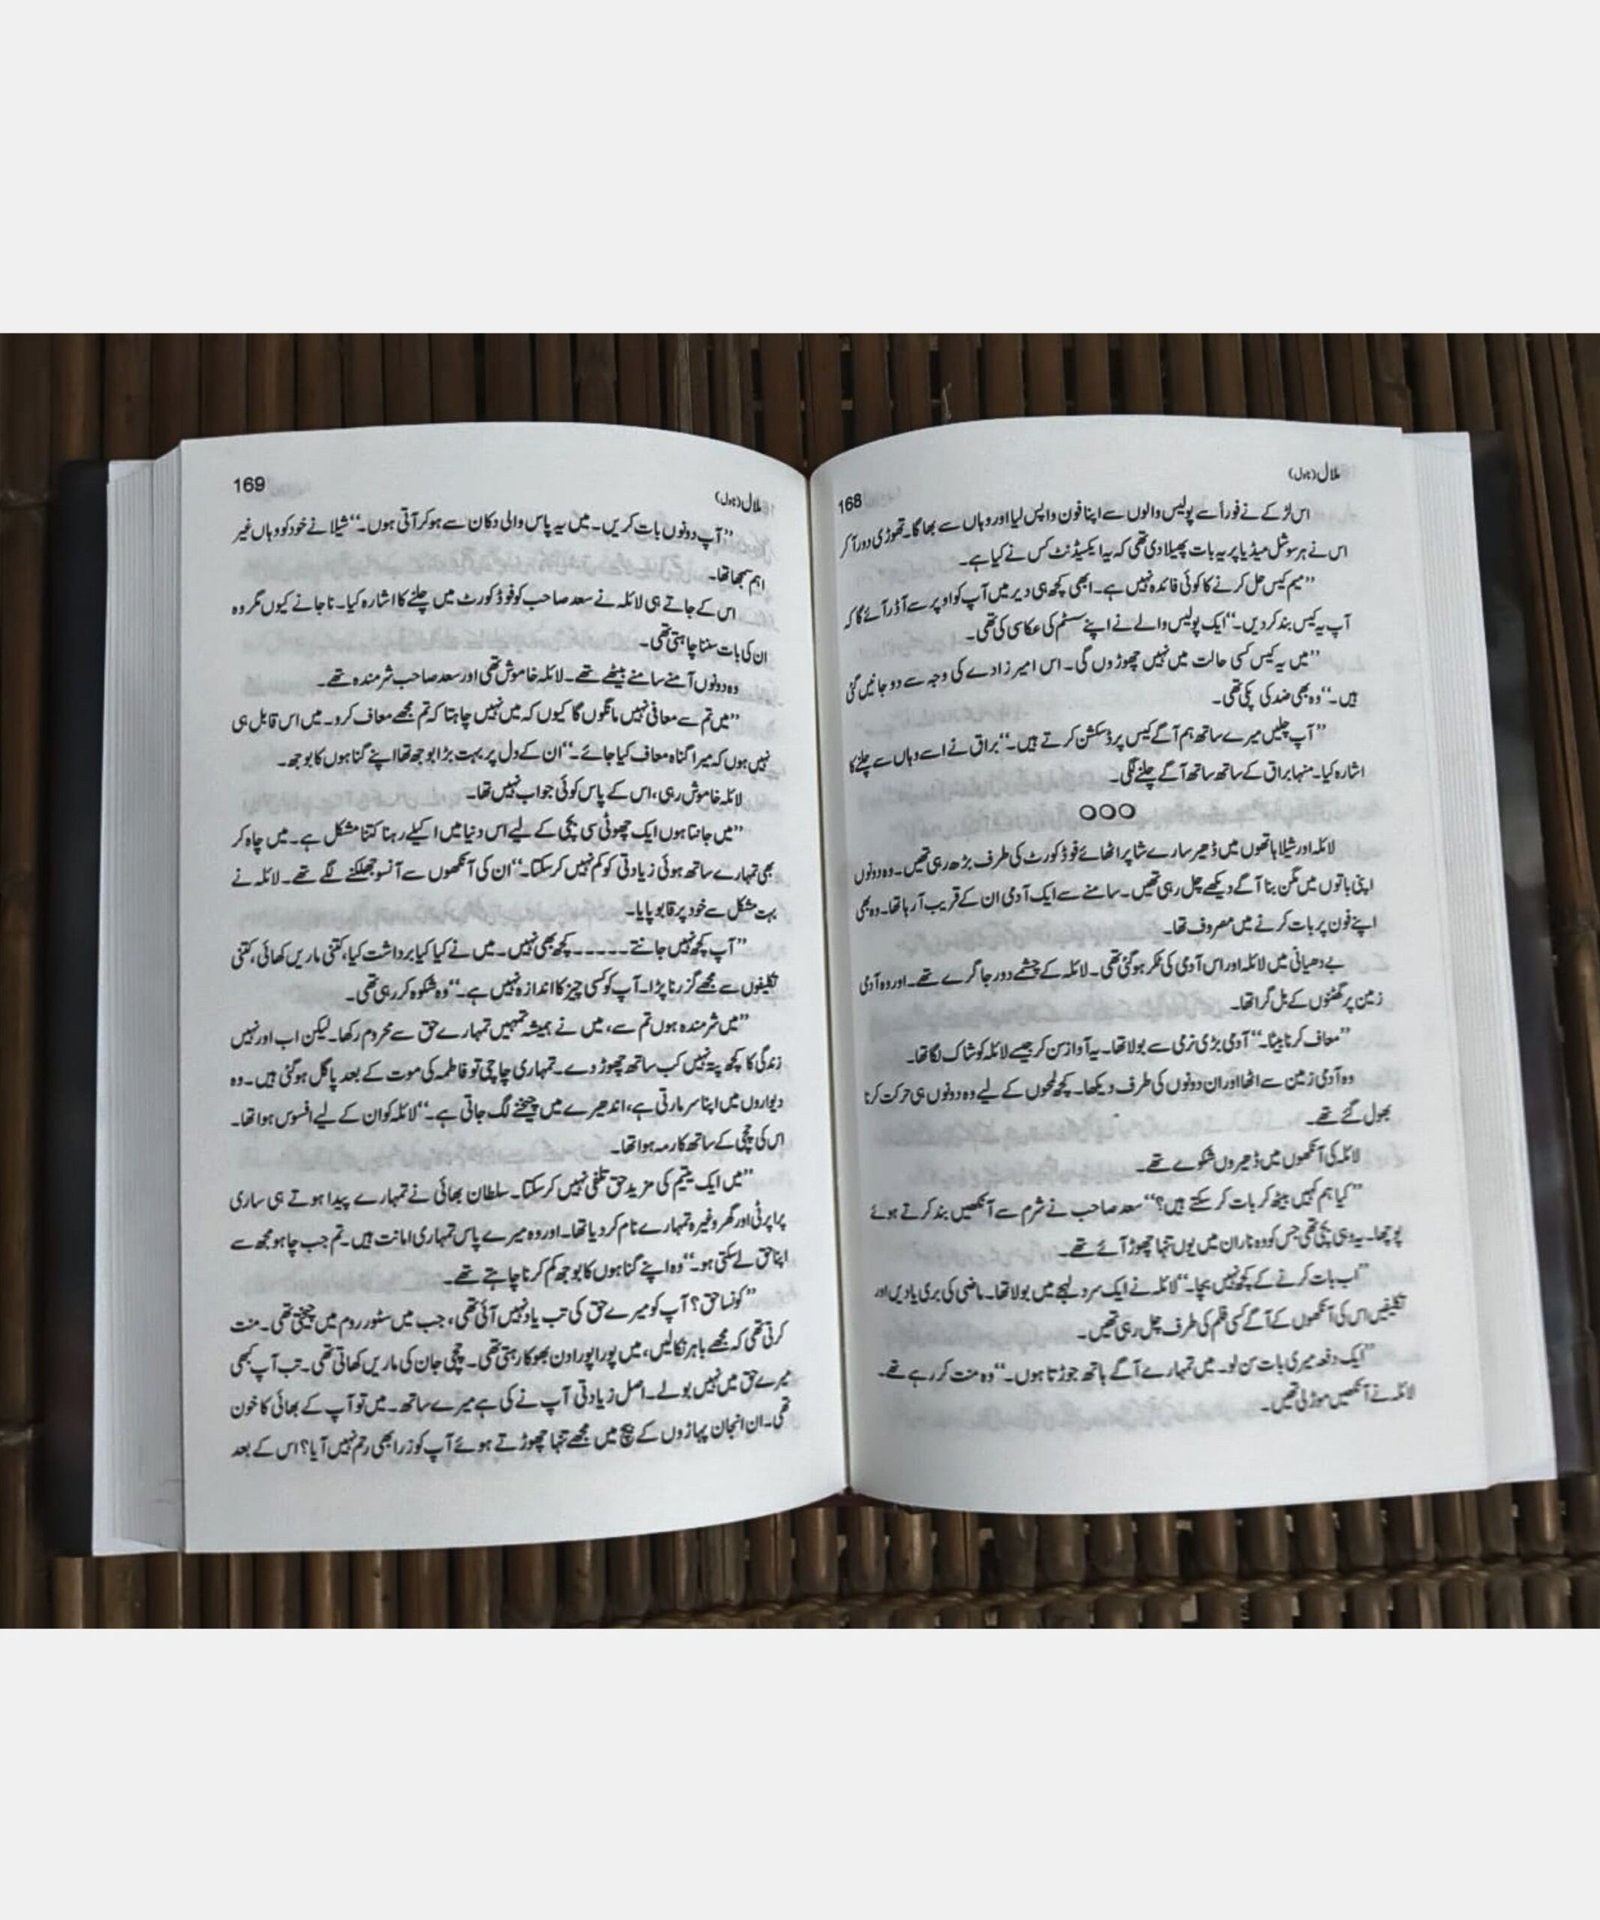 ملال (ناول)
168
اس لڑکے نے فوراً سے پولیس والوں سے اپنا فون واپس لیا اور وہاں سے بھاگا۔ تھوڑی دور آ کر
اس نے ہر سوشل میڈیا پر یہ بات پھیلا دی تھی کہ یہ ایکسیڈنٹ کس نے کیا ہے۔
”میم کیس حل کرنے کا کوئی فائدہ نہیں ہے۔ ابھی کچھ ہی دیر میں آپ کو اوپر سے آڈر آئے گا کہ
آپ یہ کیس بند کر دیں۔“ ایک پولیس والے نے اپنے سسٹم کی عکاسی کی تھی۔
”میں یہ کیس کسی حالت میں نہیں چھوڑوں گی۔ اس امیر زادے کی وجہ سے دو جانیں گئی
ہیں۔“ وہ بھی ضد کی پکی تھی۔
”آپ چلیں میرے ساتھ ہم آگے کیس پر ڈسکشن کرتے ہیں۔“ براق نے اسے وہاں سے چلنے کا
اشارہ کیا۔ منہا براق کے ساتھ ساتھ آگے چلنے لگی۔
○○○
لائلہ اور شیلا ہاتھوں میں ڈھیر سارے شاپر اٹھائے فوڈ کورٹ کی طرف بڑھ رہی تھیں۔ وہ دونوں
اپنی باتوں میں مگن بنا آگے دیکھے چل رہی تھیں۔ سامنے سے ایک آدمی ان کے قریب آ رہا تھا۔ وہ بھی
اپنے فون پر بات کرنے میں مصروف تھا۔
بے دھیانی میں لائلہ اور اس آدمی کی ٹکر ہو گئی تھی۔ لائلہ کے چشمے دور جا گرے تھے۔ اور وہ آدمی
زمین پر گھٹنوں کے بل گرا تھا۔
”معاف کرنا بیٹا۔“ آدمی بڑی نرمی سے بولا تھا۔ یہ آواز سن کر جیسے لائلہ کو شاک لگا تھا۔
وہ آدمی زمین سے اٹھا اور ان دونوں کی طرف دیکھا۔ کچھ لمحوں کے لیے وہ دونوں ہی حرکت کرنا
بھول گئے تھے۔
لائلہ کی آنکھوں میں ڈھیروں شکوے تھے۔
”کیا ہم کہیں بیٹھ کر بات کر سکتے ہیں؟“ سعد صاحب نے شرم سے آنکھیں بند کرتے ہوئے
پوچھا۔ یہ وہی بچی تھی جس کو وہ ناران میں یوں تنہا چھوڑ آئے تھے۔
”اب بات کرنے کے کچھ نہیں بچا۔“ لائلہ نے ایک سرد لہجے میں بولا تھا۔ ماضی کی بری یادیں اور
تکلیفیں اس کی آنکھوں کے آگے کسی فلم کی طرف چل رہی تھیں۔
”ایک دفعہ میری بات سن لو۔ میں تمہارے آگے ہاتھ جوڑتا ہوں۔“ وہ منت کر رہے تھے۔
لائلہ نے آنکھیں موڑ لی تھیں۔
ملال (ناول)
169
”آپ دونوں بات کریں۔ میں یہ پاس والی دکان سے ہو کر آتی ہوں۔“ شیلا نے خود کو وہاں غیر
اہم سمجھا تھا۔
اس کے جاتے ہی لائلہ نے سعد صاحب کو فوڈ کورٹ میں چلنے کا اشارہ کیا۔ نا جانے کیوں مگر وہ
ان کی بات سننا چاہتی تھی۔
وہ دونوں آمنے سامنے بیٹھے تھے۔ لائلہ خاموش تھی اور سعد صاحب شرمندہ تھے۔
”میں تم سے معافی نہیں مانگوں گا کیوں کہ میں نہیں چاہتا کہ تم مجھے معاف کرو۔ میں اس قابل ہی
نہیں ہوں کہ میرا گناہ معاف کیا جائے۔“ ان کے دل پر بہت بڑا بوجھ تھا اپنے گناہوں کا بوجھ۔
لائلہ خاموش رہی، اس کے پاس کوئی جواب نہیں تھا۔
”میں جانتا ہوں ایک چھوٹی سی بچی کے لیے اس دنیا میں اکیلے رہنا کتنا مشکل ہے۔ میں چاہ کر
بھی تمہارے ساتھ ہوئی زیادتی کو کم نہیں کر سکتا۔“ ان کی آنکھوں سے آنسو چھلکنے لگے تھے۔ لائلہ نے
بہت مشکل سے خود پر قابو پایا۔
”آپ کچھ نہیں جانتے۔۔۔۔۔ کچھ بھی نہیں۔ میں نے کیا کیا برداشت کیا، کتنی ماریں کھائی، کتنی
تکلیفوں سے مجھے گزرنا پڑا۔ آپ کو کسی چیز کا اندازہ نہیں ہے۔“ وہ شکوہ کر رہی تھی۔
”میں شرمندہ ہوں تم سے، میں نے ہمیشہ تمہیں تمہارے حق سے محروم رکھا۔ لیکن اب اور نہیں
زندگی کا کچھ پتہ نہیں کب ساتھ چھوڑ دے۔ تمہاری چاچی تو فاطمہ کی موت کے بعد پاگل ہو گئی ہیں۔ وہ
دیواروں میں اپنا سر مارتی ہے، اندھیرے میں چیخنے لگ جاتی ہے۔“ لائلہ کو ان کے لیے افسوس ہوا تھا۔
اس کی چچی کے ساتھ کارمہ ہوا تھا۔
”میں ایک یتیم کی مزید حق تلفی نہیں کر سکتا۔ سلطان بھائی نے تمہارے پیدا ہوتے ہی ساری
پراپرٹی اور گھر وغیرہ تمہارے نام کر دیا تھا۔ اور وہ میرے پاس تمہاری امانت ہیں۔ تم جب چاہو مجھ سے
اپنا حق لے سکتی ہو۔“ وہ اپنے گناہوں کا بوجھ کم کرنا چاہتے تھے۔
”کونسا حق؟ آپ کو میرے حق کی تب یاد نہیں آئی تھی، جب میں سٹور روم میں چیختی تھی۔ منت
کرتی تھی کہ مجھے باہر نکالیں، میں پورا پورا دن بھوکا رہتی تھی۔ چچی جان کی ماریں کھاتی تھی۔ تب آپ کبھی
میرے حق میں نہیں بولے۔ اصل زیادتی آپ نے کی ہے میرے ساتھ۔ میں تو آپ کے بھائی کا خون
تھی۔ ان انجان پہاڑوں کے بیچ میں مجھے تنہا چھوڑتے ہوئے آپ کو زرا بھی رحم نہیں آیا؟ اس کے بعد